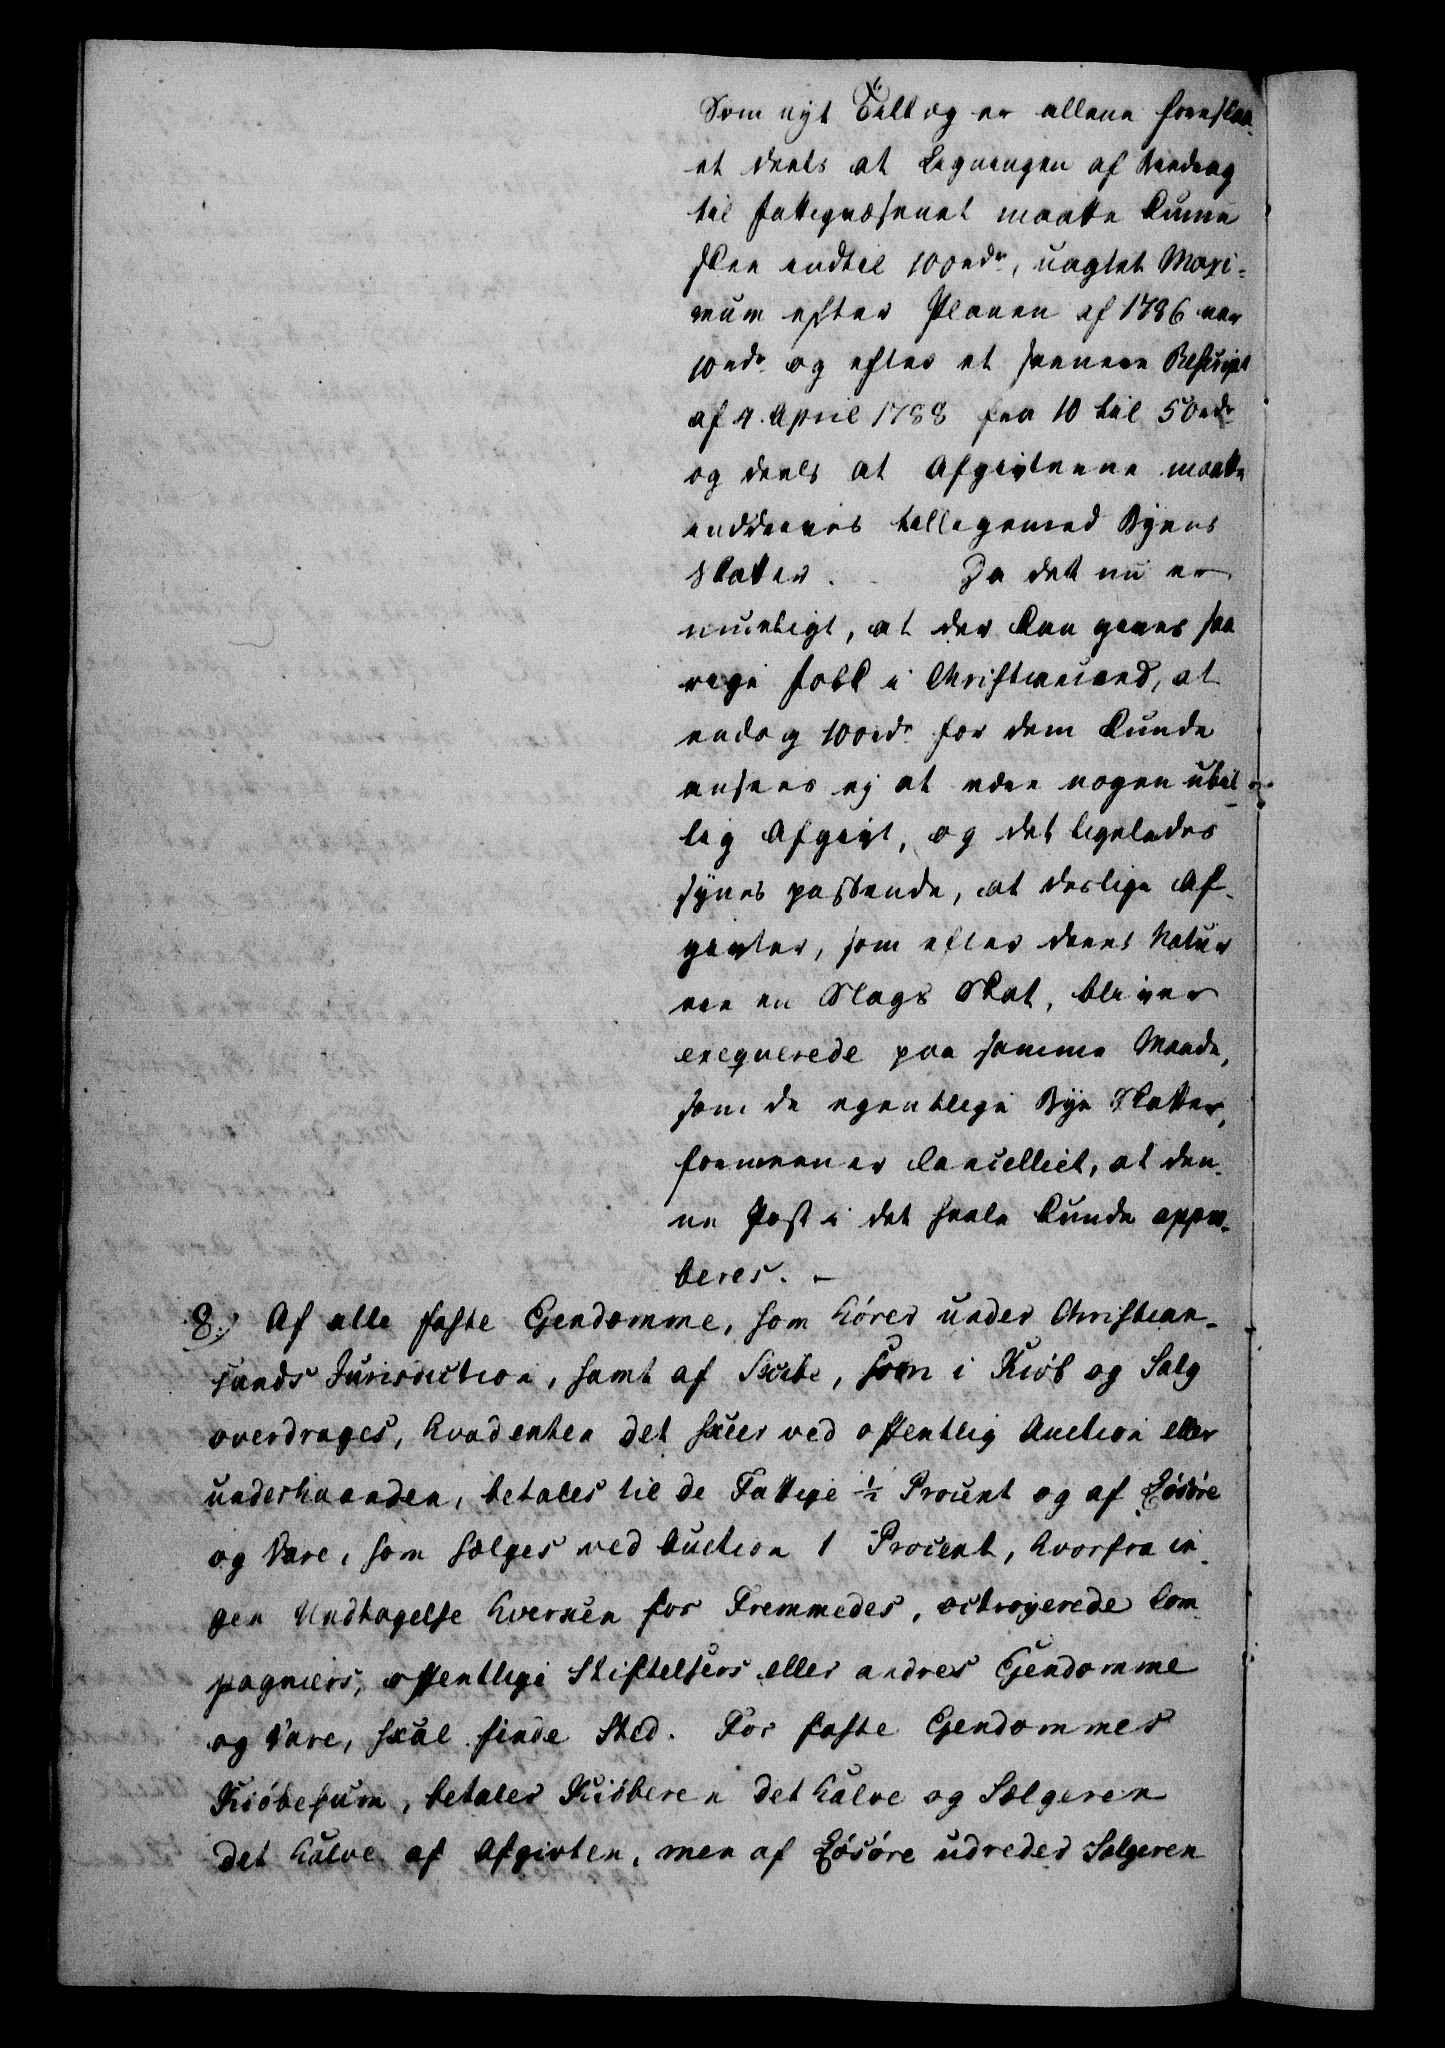 Som nyt Tillæg er allene foreslaa-
et deels at Ligningen af Beedrag
til Fattigvæsenet maatte kunne
skee indtil 100rdr, uagtet Maxi-
mum efter Planen af 1786 var
10rdr og efter et seenere Rescript
af 4 April 1788 fra 10 til 50rdr
og deels at Afgivterne maatte
inddrives tilligemed Byens
Skatter. Da det nu er
mueligt, at der kan gives saa
rige Folk i Christiansand, at
endog 100rdr for dem kunde
ansees ej at være nogen ubil-
lig Afgivt, og det ligeledes
synes passende, at deslige Af-
givter, som efter deres Natur
ere en Slags Skat, bliver
exeqverede paa samme Maade,
som de egentlige Bye Skatter,
formeener Cancelliet, at den-
ne Post i det heele kunde appro-
beres. -
8.) Af alle faste Ejendomme, som hører under Christian-
sands Jurisdiction, samt af Skibe, som i Kiøb og Salg
overdrages, hvad enten det skeer ved offentlig Auction eller
underhaanden, betales til de Fattige ½ Procent og af Løsøre
og Vare, som sælges ved Auction 1 Procent, hvorfra in-
gen Undtagelse hverken for Fremmedes, octroyerede Com-
pagniers, offentlige Stiftelsers eller andres Ejendomme
og Vare, skal finde Sted. For faste Ejendommes
Kiøbesum, betaler Kiøberen det halve og Sælgeren
det halve af Afgivten, men af Løsøre udreder Sælgeren